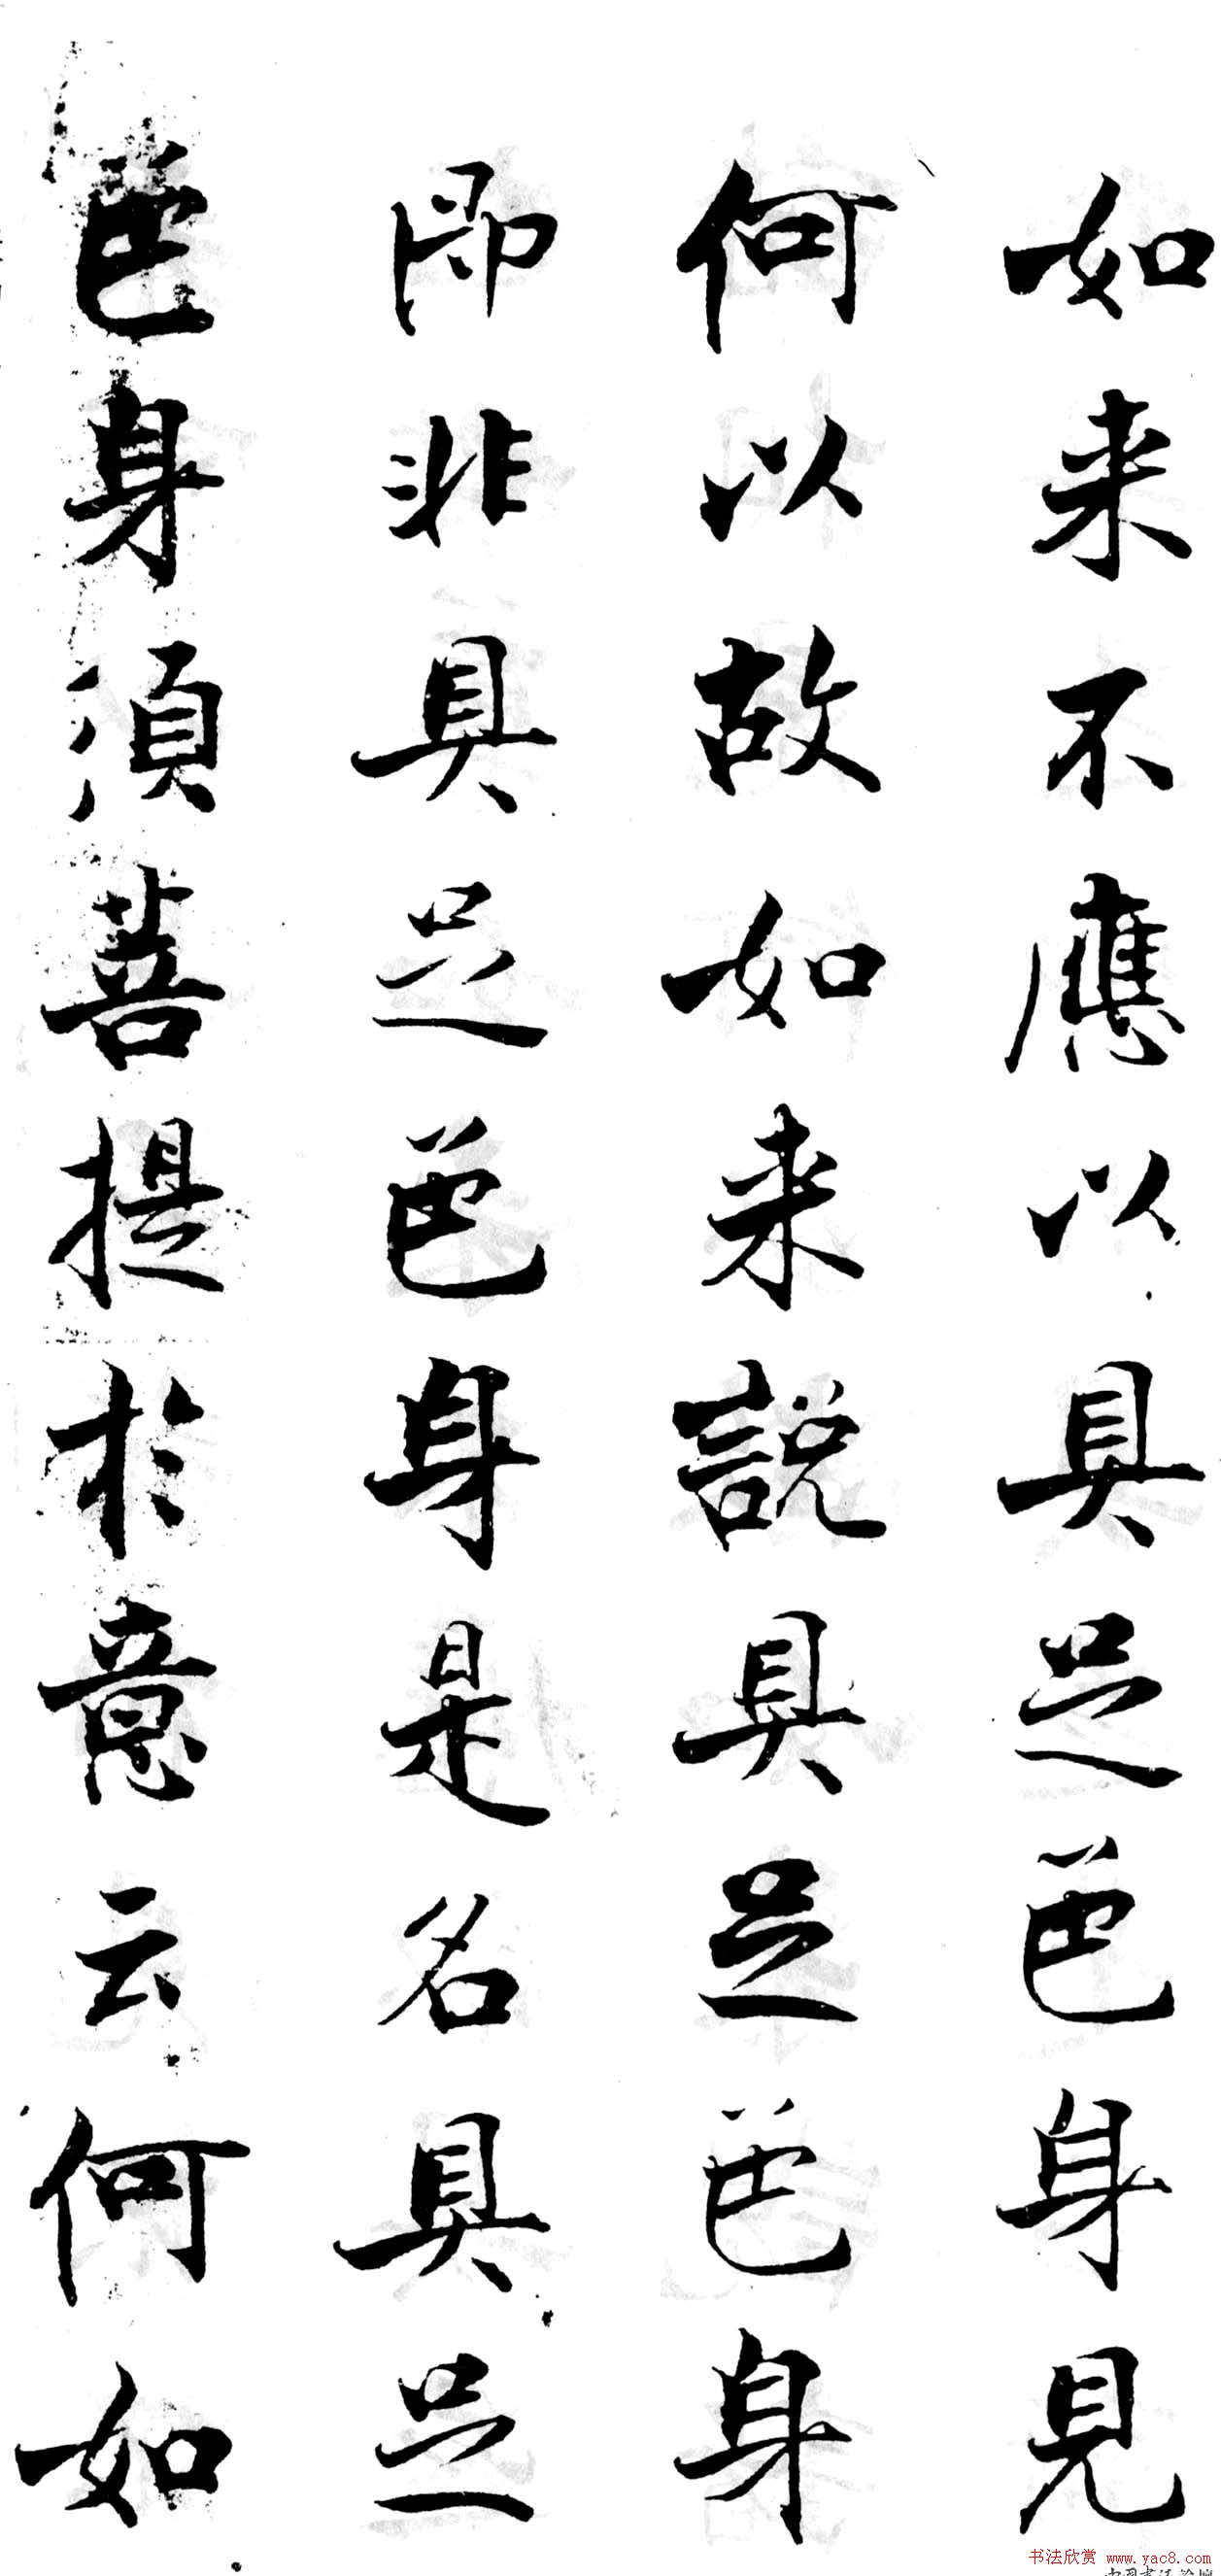 如来不應以具足色身見
何以故如来說具足色身
即非具足色身是名具足
色身須菩提於意云何如
书法欣赏 www.yac8.com